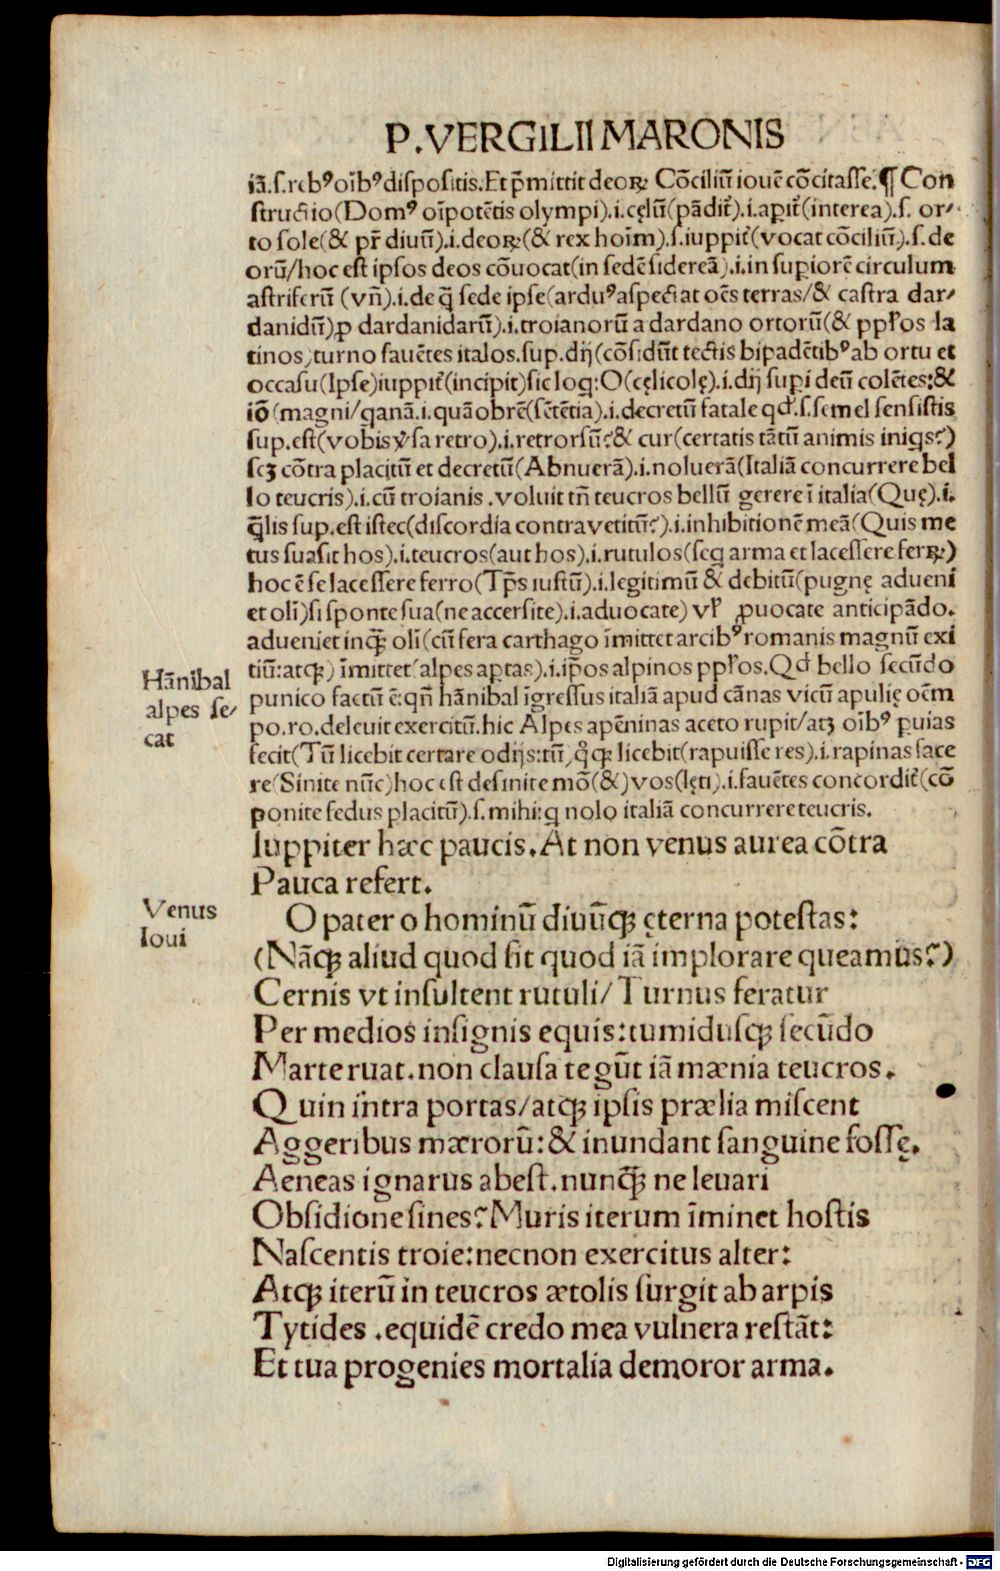 P. VERGILII MARONIS
iā.ſ.rebꝰ oībꝰ dispoſitis. Et p̄mittit deoꝝ Cōciliū iouē cōcitaſſe.¶ Con
ſtructio (Domꝰ oīpotētis olympi).i.cęlū (pādit̄).i.apit̄ (interea).ſ. or⸗
to ſole (& pr̄ diuū).i.deoꝝ (& rex hoīm).ſ.iuppit̄ (vocat cōciliū).ſ.de
orū/hoc eſt ipſos deos cōuocat (in ſedē ſidereā).i.in ſupiorē circulum
aſtriferū (vn̄).i.de q̄ ſede ipſe (arduꝰ aſpectat oēs terras/& caſtra dar⸗
danidū) ꝓ dardanidarū).i.troianorū a dardano ortorū (& pp̄los la
tinos) turno fauētes italos.ſup.dij (cōſidūt tectis bipadētibꝰ ab ortu et
occaſu (Ipſe) iuppit̄ (incipit) ſic loq: O (cęlicolę).i.dij ſuꝑi deū colētes: &
iō (magni/qanā.i.quāobrē (ſētētia).i.decretū fatale qđ.ſ.ſemel ſenſiſtis
ſup.eſt (vobis v̓ſa retro).i.retrorſū? & cur (certatis tātū animis iniqs?)
ſcꝫ cōtra placitū et decretū (Abnuerā).i.noluerā (Italiā concurrere bel
lo teucris).i.cū troianis. voluit tn̄ teucros bellū gerere ī italia (Quę).i.
q̄lis ſup.eſt iſtec (diſcordia contra vetitū?).i.inhibitionē meā (Quis me
tus ſuaſit hos).i.teucros (aut hos).i.rutulos (ſeq arma et laceſſere ferꝝ)
hoc ē ſe laceſſere ferro (Tp̄s iuſtū).i.legitimū & debitū (pugnę adueni
et oli) ſi ſponte ſua (ne accerſite).i.aduocate) vl̓ ꝓuocate anticipādo.
adueniet inqꝫ oli (cū fera carthago īmittet arcibꝰ romanis magnū exi
tiū: atqꝫ) īmittet (alpes aꝑtas).i.ip̄os alpinos pp̄los. Qđ bello ſecūdo
punico factū ē: qn̄ hānibal īgreſſus italiā apud cānas vicū apulię oēm
po.ro. deleuit exercitū. hic Alpes apēninas aceto rupit/atꝫ oībꝰ ꝑuias
fecit (Tū licebit certare odijs: tū) qͦqꝫ licebit (rapuiſſe res).i.rapinas face
re (Sinite nūc) hoc eſt deſinite mō (&) vos (lęti).i.fauētes concordit̄ (cō
ponite fedus placitū).ſ.mihi: q nolo italiā concurrere teucris.
Iuppiter hæc paucis. At non venus aurea cōtra
Pauca refert.
O pater o hominū diuūqꝫ ęterna poteſtas:
(Nāqꝫ aliud quod ſit quod iā implorare queamus?)
Cernis vt inſultent rutuli/ Turnus feratur
Per medios inſignis equis: tumiduſqꝫ ſecūdo
Marte ruat. non clauſa tegūt iā mænia teucros.
Quin intra portas/atqꝫ ipſis prælia miſcent
Aggeribus mærorū: & inundant ſanguine foſſę.
Aeneas ignarus abeſt. nunqꝫ̄ ne leuari
Obſidione ſines? Muris iterum īminet hoſtis
Naſcentis troie: necnon exercitus alter:
Atqꝫ iterū in teucros ætolis ſurgit ab arpis
Tytides. equidē credo mea vulnera reſtāt:
Et tua progenies mortalia demoror arma.
Hānibal
alpes ſe⸗
cat
Venus
Ioui
Digitalisierung gefördert durch die Deutsche Forschungsgemeinschaft - DFG